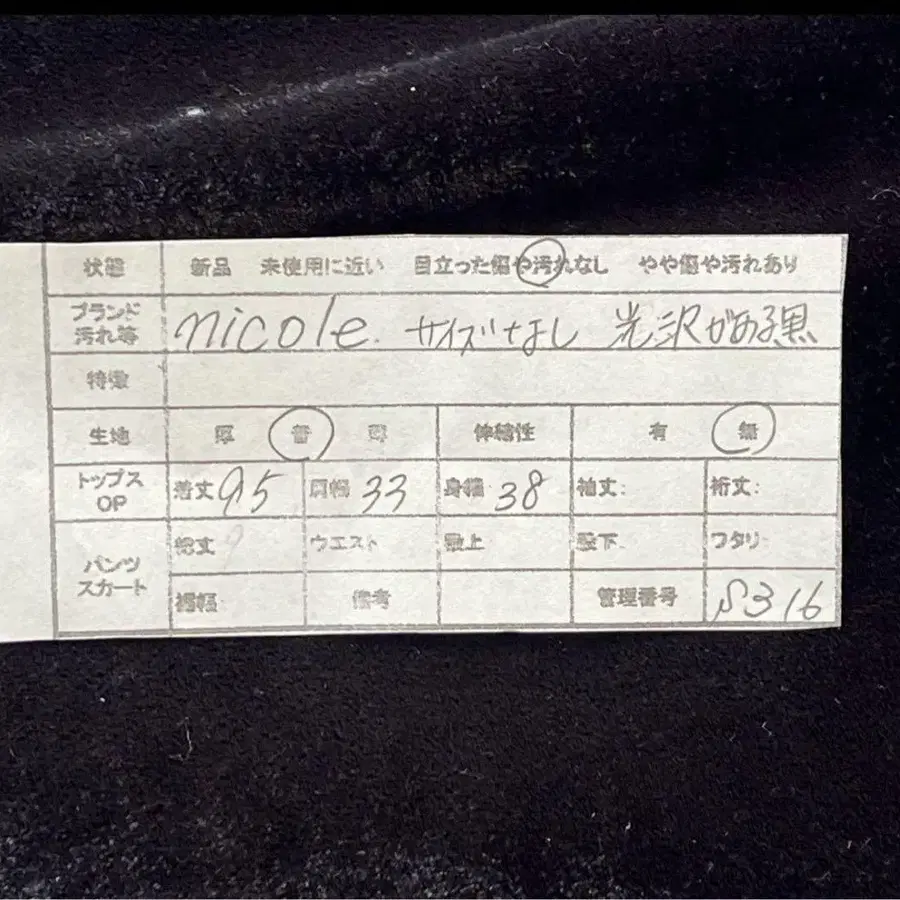 状態 新品 未使用に近い 目立った傷や汚れなし やや傷や汚れあり
ブランド
汚れ等 nicole. サイズなし 光沢がある黒
特徴
生地 厚 普 薄 伸縮性 有 無
トップス
OP 着丈 95 肩幅 33 身幅 38 袖丈: 裄丈:
パンツ
スカート 総丈 ウエスト 股上 股下 ワタリ
裾幅 備考 管理番号 S316